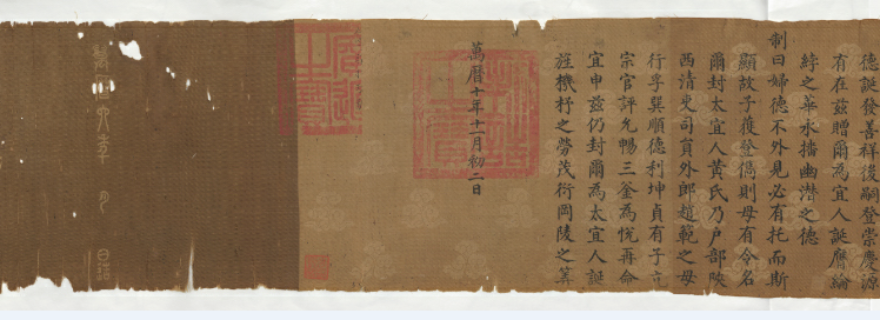 德誕發善祥後嗣登崇慶源
有在兹贈爾為宜人誕膺綸
綍之華永播幽潛之德
制曰婦德不外見必有托而斯
顯故子獲登儁則母有令名
爾封太宜人黃氏乃户部陝
西清吏司員外郎趙範之母
行孚巽順德利坤貞有子亢
宗官評允暢三釜為悅再命
宜申兹仍封爾為太宜人誕
旌機杼之勞茂衍岡陵之筭
萬曆十年十一月初二日
制誥之寶
年月日